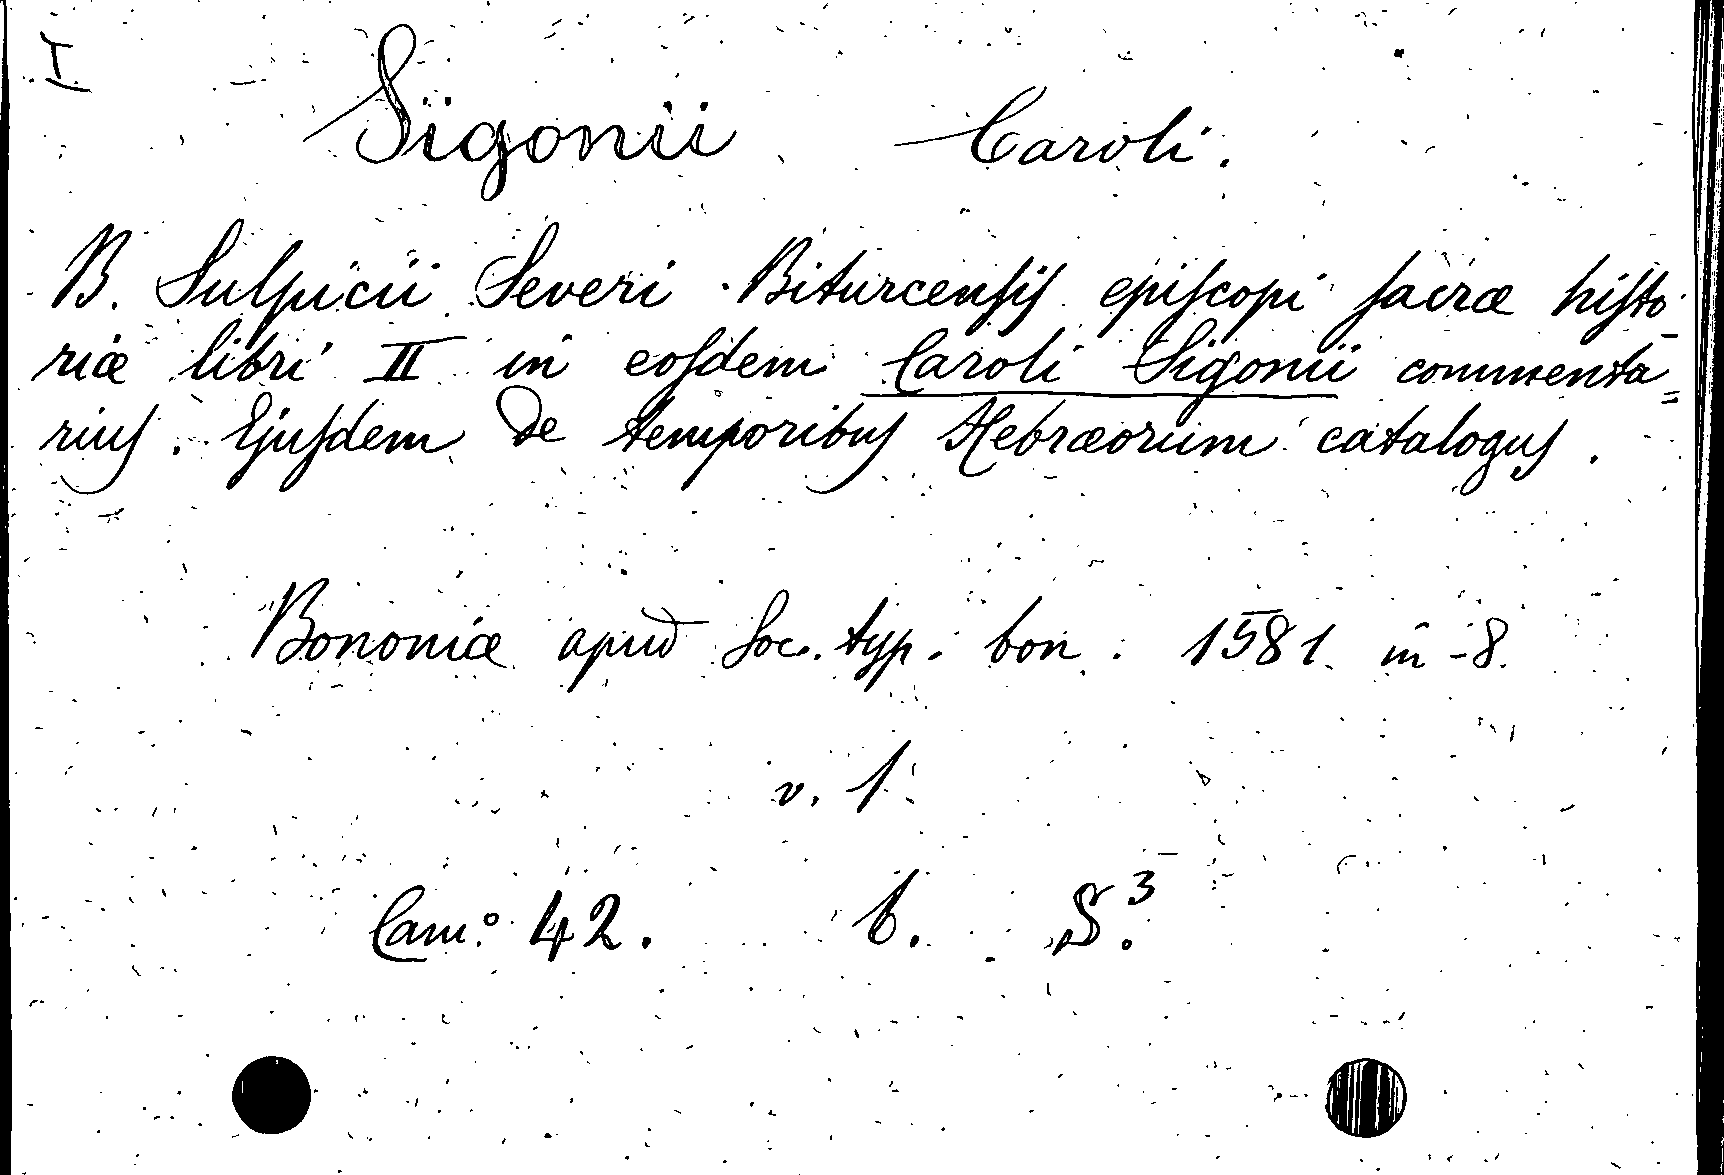 I
Sigonii Caroli.
B. Sulpicii Severi Biturcensis episcopi sacræ histo-
riæ libri II in eosdem Caroli Sigonii commenta=
rius. Ejusdem De temporibus Hebræorum catalogus.
Bononiæ apud Soc. typ. bon. 1581. in-8.
v. 1.
Cam.° 42. b. S.³